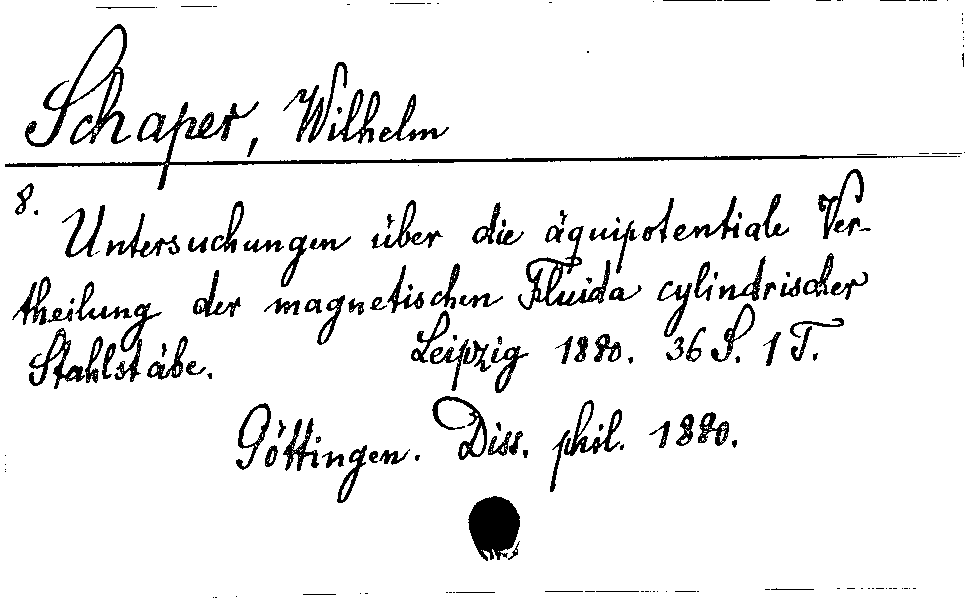 Schaper, Wilhelm
8.
Untersuchungen über die äquipotentiale Ver-
theilung der magnetischen Fluida cylindrischer
Stahlstäbe. Leipzig 1880. 36 S. 1 T.
Göttingen. Diss. phil. 1880.